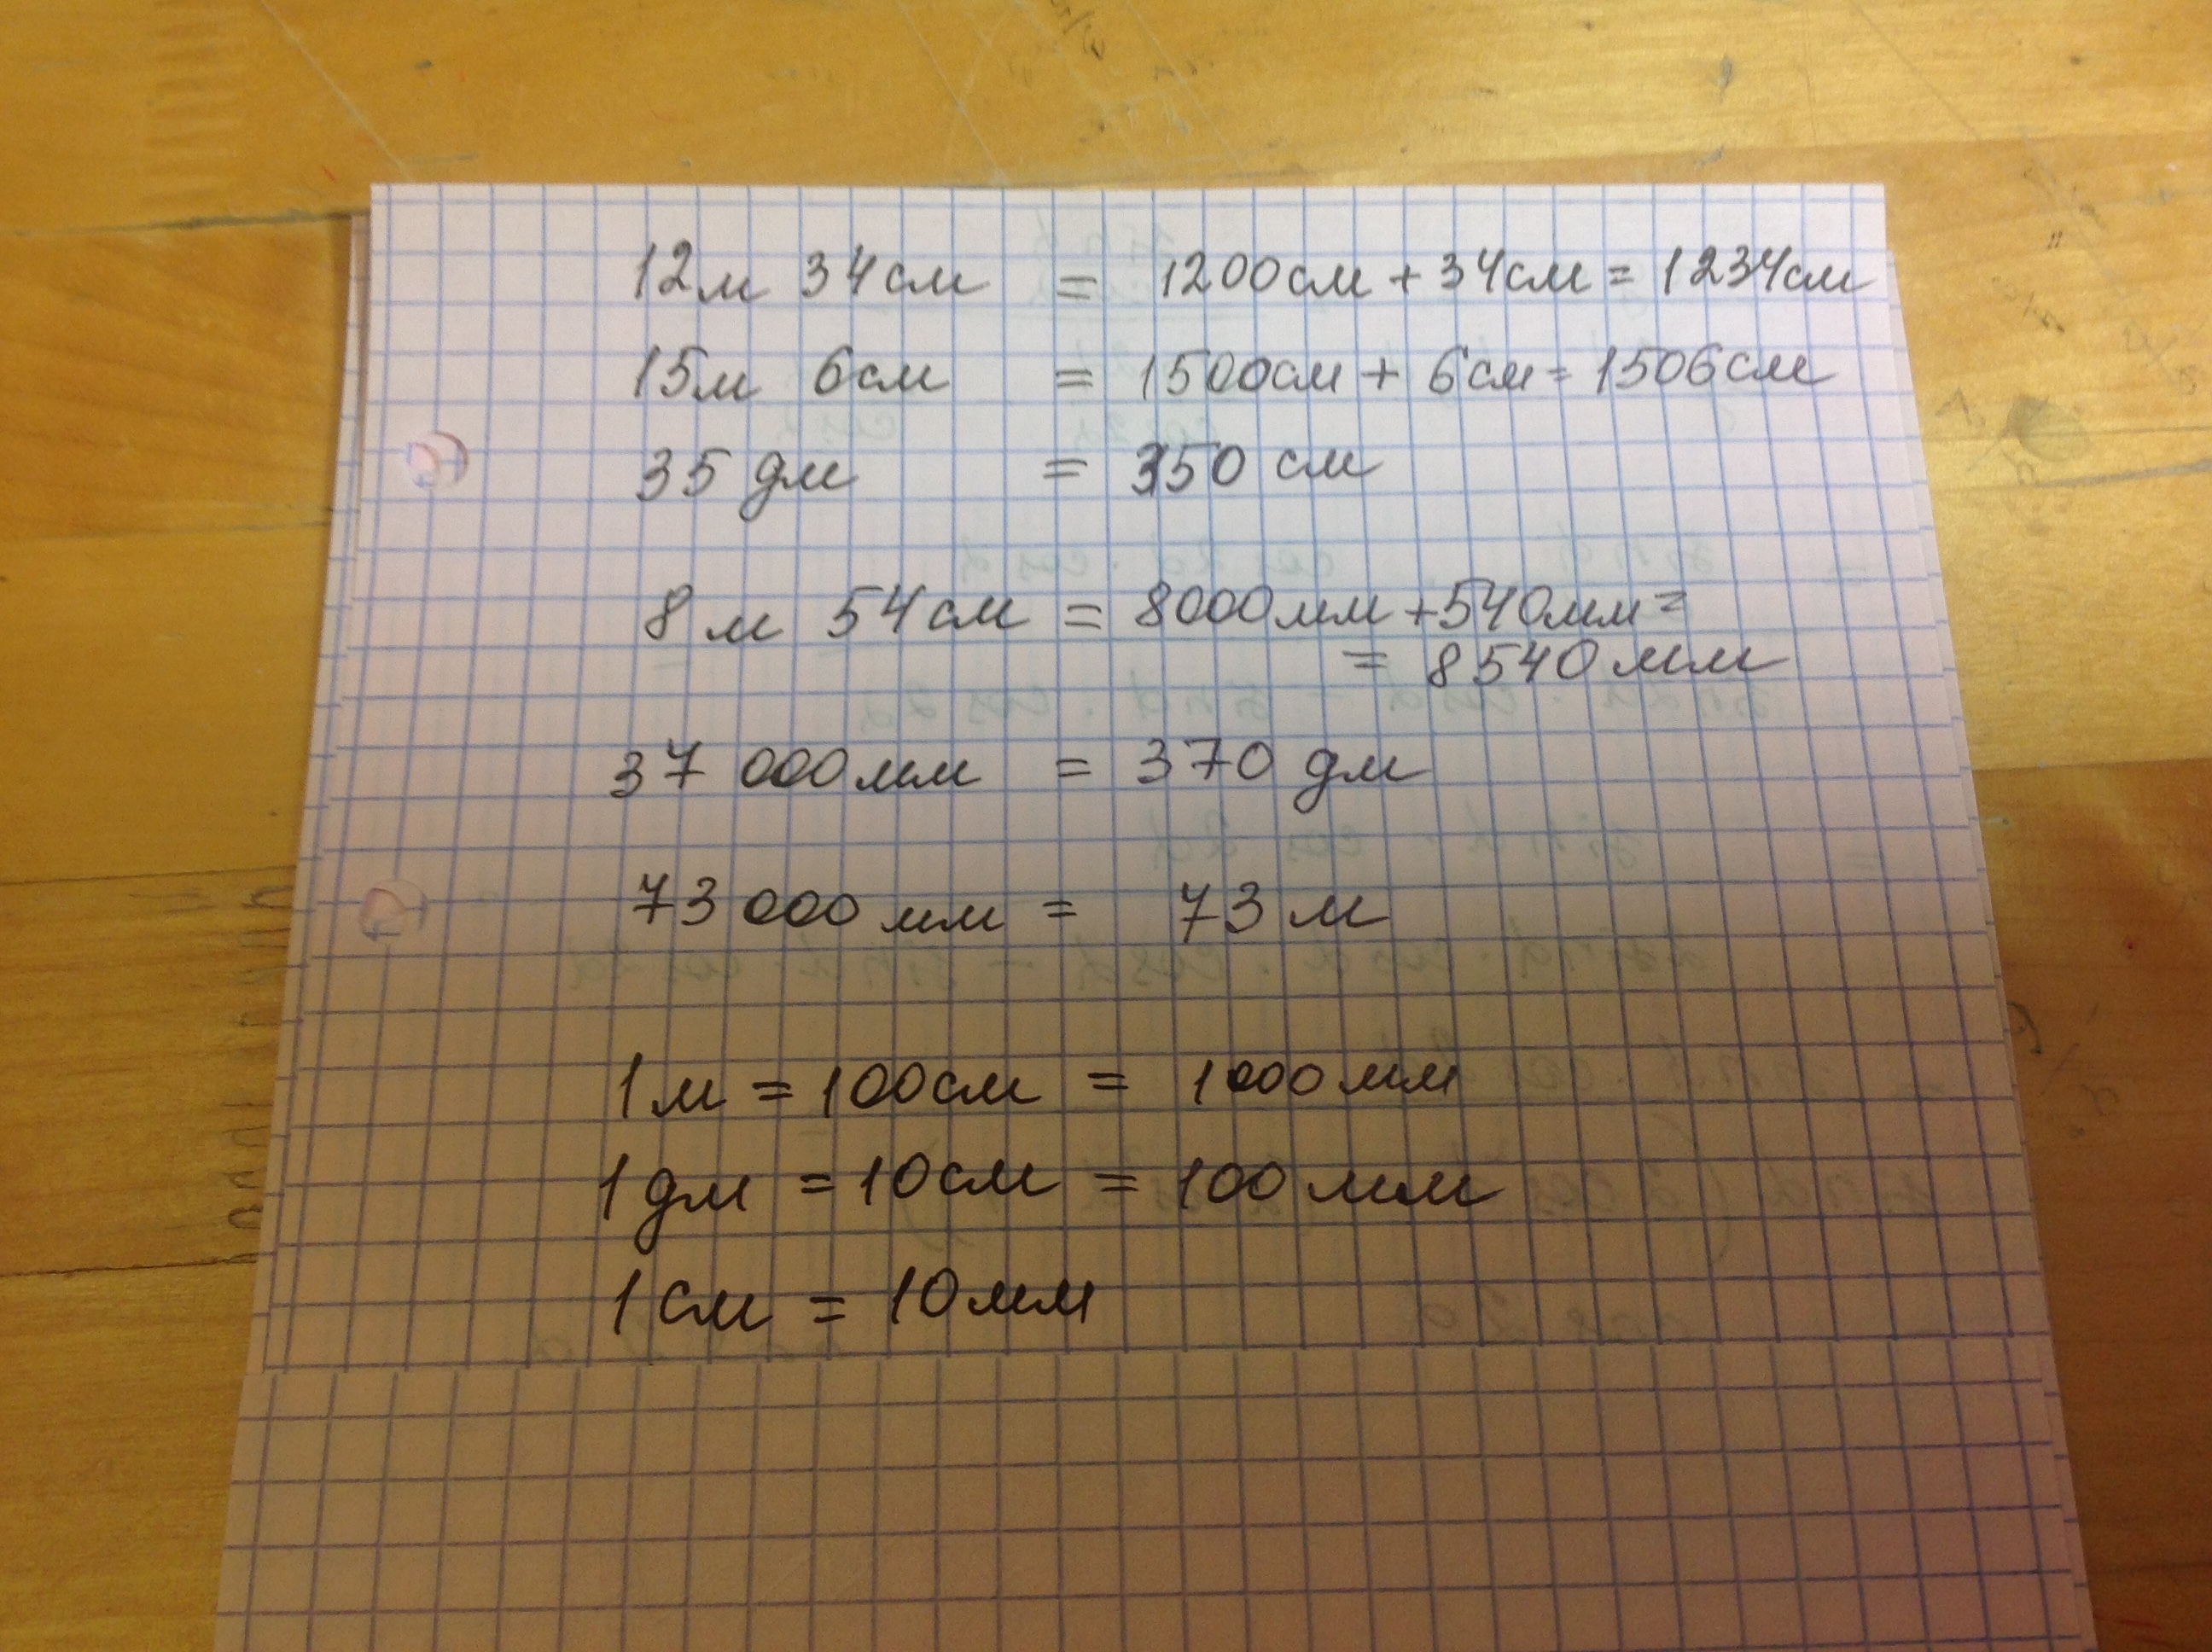 12м 34см = 1200см + 34см = 1234см
15м 6см = 1500см + 6см = 1506см
35 дм = 350 см
8 м 54см = 8000мм + 540мм =
= 8540 мм
37 000мм = 370 дм
73 000 мм = 73 м
1м = 100см = 1000мм
1дм = 10см = 100 мм
1 см = 10мм